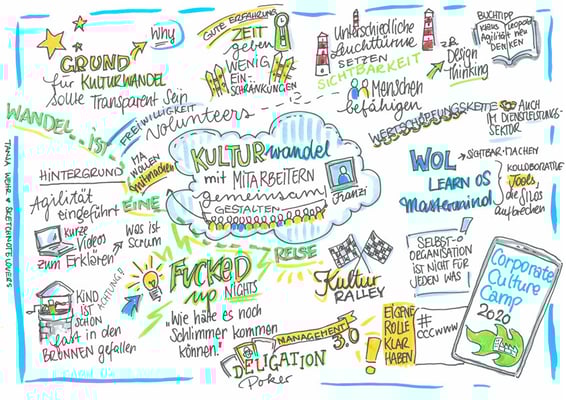 GRUND
Why
für KULTURWANDEL
sollte Transparent sein
GUTE ERFAHRUNG
ZEIT
geben
WENIG
EIN-
SCHRÄNKUNGEN
UNTERSCHIEDLICHE
Leuchttürme
SETZEN
SICHTBARKEIT
z.B.
Design
Thinking
Menschen
befähigen
BUCHTIPP
Klaus Leopold
Agilität neu
DENKEN
WANDEL IST
EINE
REISE
FREIWILLIGKEIT
Volunteers
MA
WOLLEN
mitmachen
KULTURwandel
mit MITARBEITERN
gemeinsam
GESTALTEN
Franzi
WERTSCHÖPFUNGSKETTE
AUCH
IM DIENSTLEISTUNGS-
SEKTOR
WOL
SICHTBAR MACHEN
LEARN OS
Mastermind
KOLLABORATIVE
Tools,
die SILOS
aufbrechen
HINTERGRUND
Agilität
eingeführt
KURZE
Videos
zum Erklären
Was ist
Scrum
ACHTUNG!
KIND
IST
SCHON
fast in den
BRUNNEN gefallen
FUCKED
up NIGHTS
"Wie hätte es noch
Schlimmer kommen
können."
Kultur
RALLEY
MANAGEMENT
3.0
DELIGATION
Poker
EIGENE
ROLLE
KLAR
HABEN
SELBST-O
ORGANISATION
IST NICHT FÜR
JEDEN WAS
#
CCCWWW
Corporate
Culture
Camp
2020
TANJA WEHR ♥ SKETCHNOTELOVERS